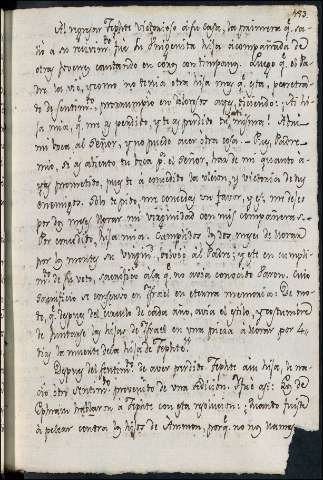 183.
Al regresar Jephte victorioso a su casa, la primera q.e sa-
lio a su recivim.to fue su Unigenita hija acompañada de
otras jovenes cantando en coros con tympano. Luego q.e el Pa-
dre la vio, como no tenia otra hija mas q.e esta, penetrado
de sentim.to prorrumpio en dolorosos ayes, diciendo: Ai hi-
ja mia, q.e me as perdido, y te as perdido tu misma! Abri
mi boca al Señor, y no puedo acer otra cosa. - Pues, Padre
mio, si as abierto tu boca p.a el Señor, haz de mi quanto a-
yas prometido, pues te a concedido la vengan, y victoria de tus
enemigos. Solo te pido, me concedas un favor, y es, me dejes
por dos meses llorar mi virginidad con mis compañeras. -
Sea concedido, hija mia. Cumplidos los dos meses de llorar
por los montes su virgin.d bolvio al Padre; y este en cumpli-
m.to de su voto, sacrifico a la q.e no avia conocido Varon. Cuio
sacrificio se conservo en Israel en eterna memoria: De mo-
do, q.e despues del circulo de cada año, avia el estilo, y costumbre
de juntarse las hijas de Israel en una pieza a llorar por 4.
dias la muerte de la hija de Jephte.
Despues del sentim.to de aver perdido Jephte a su hija, le na-
cio otro sentim.to proveniente de una sedicion. Fue asi: Los de
Ephraim hablaron a Jephte con esta resolucion: Quando fuiste
a pelear contra los hijos de Ammon, porq.e no nos llamas-